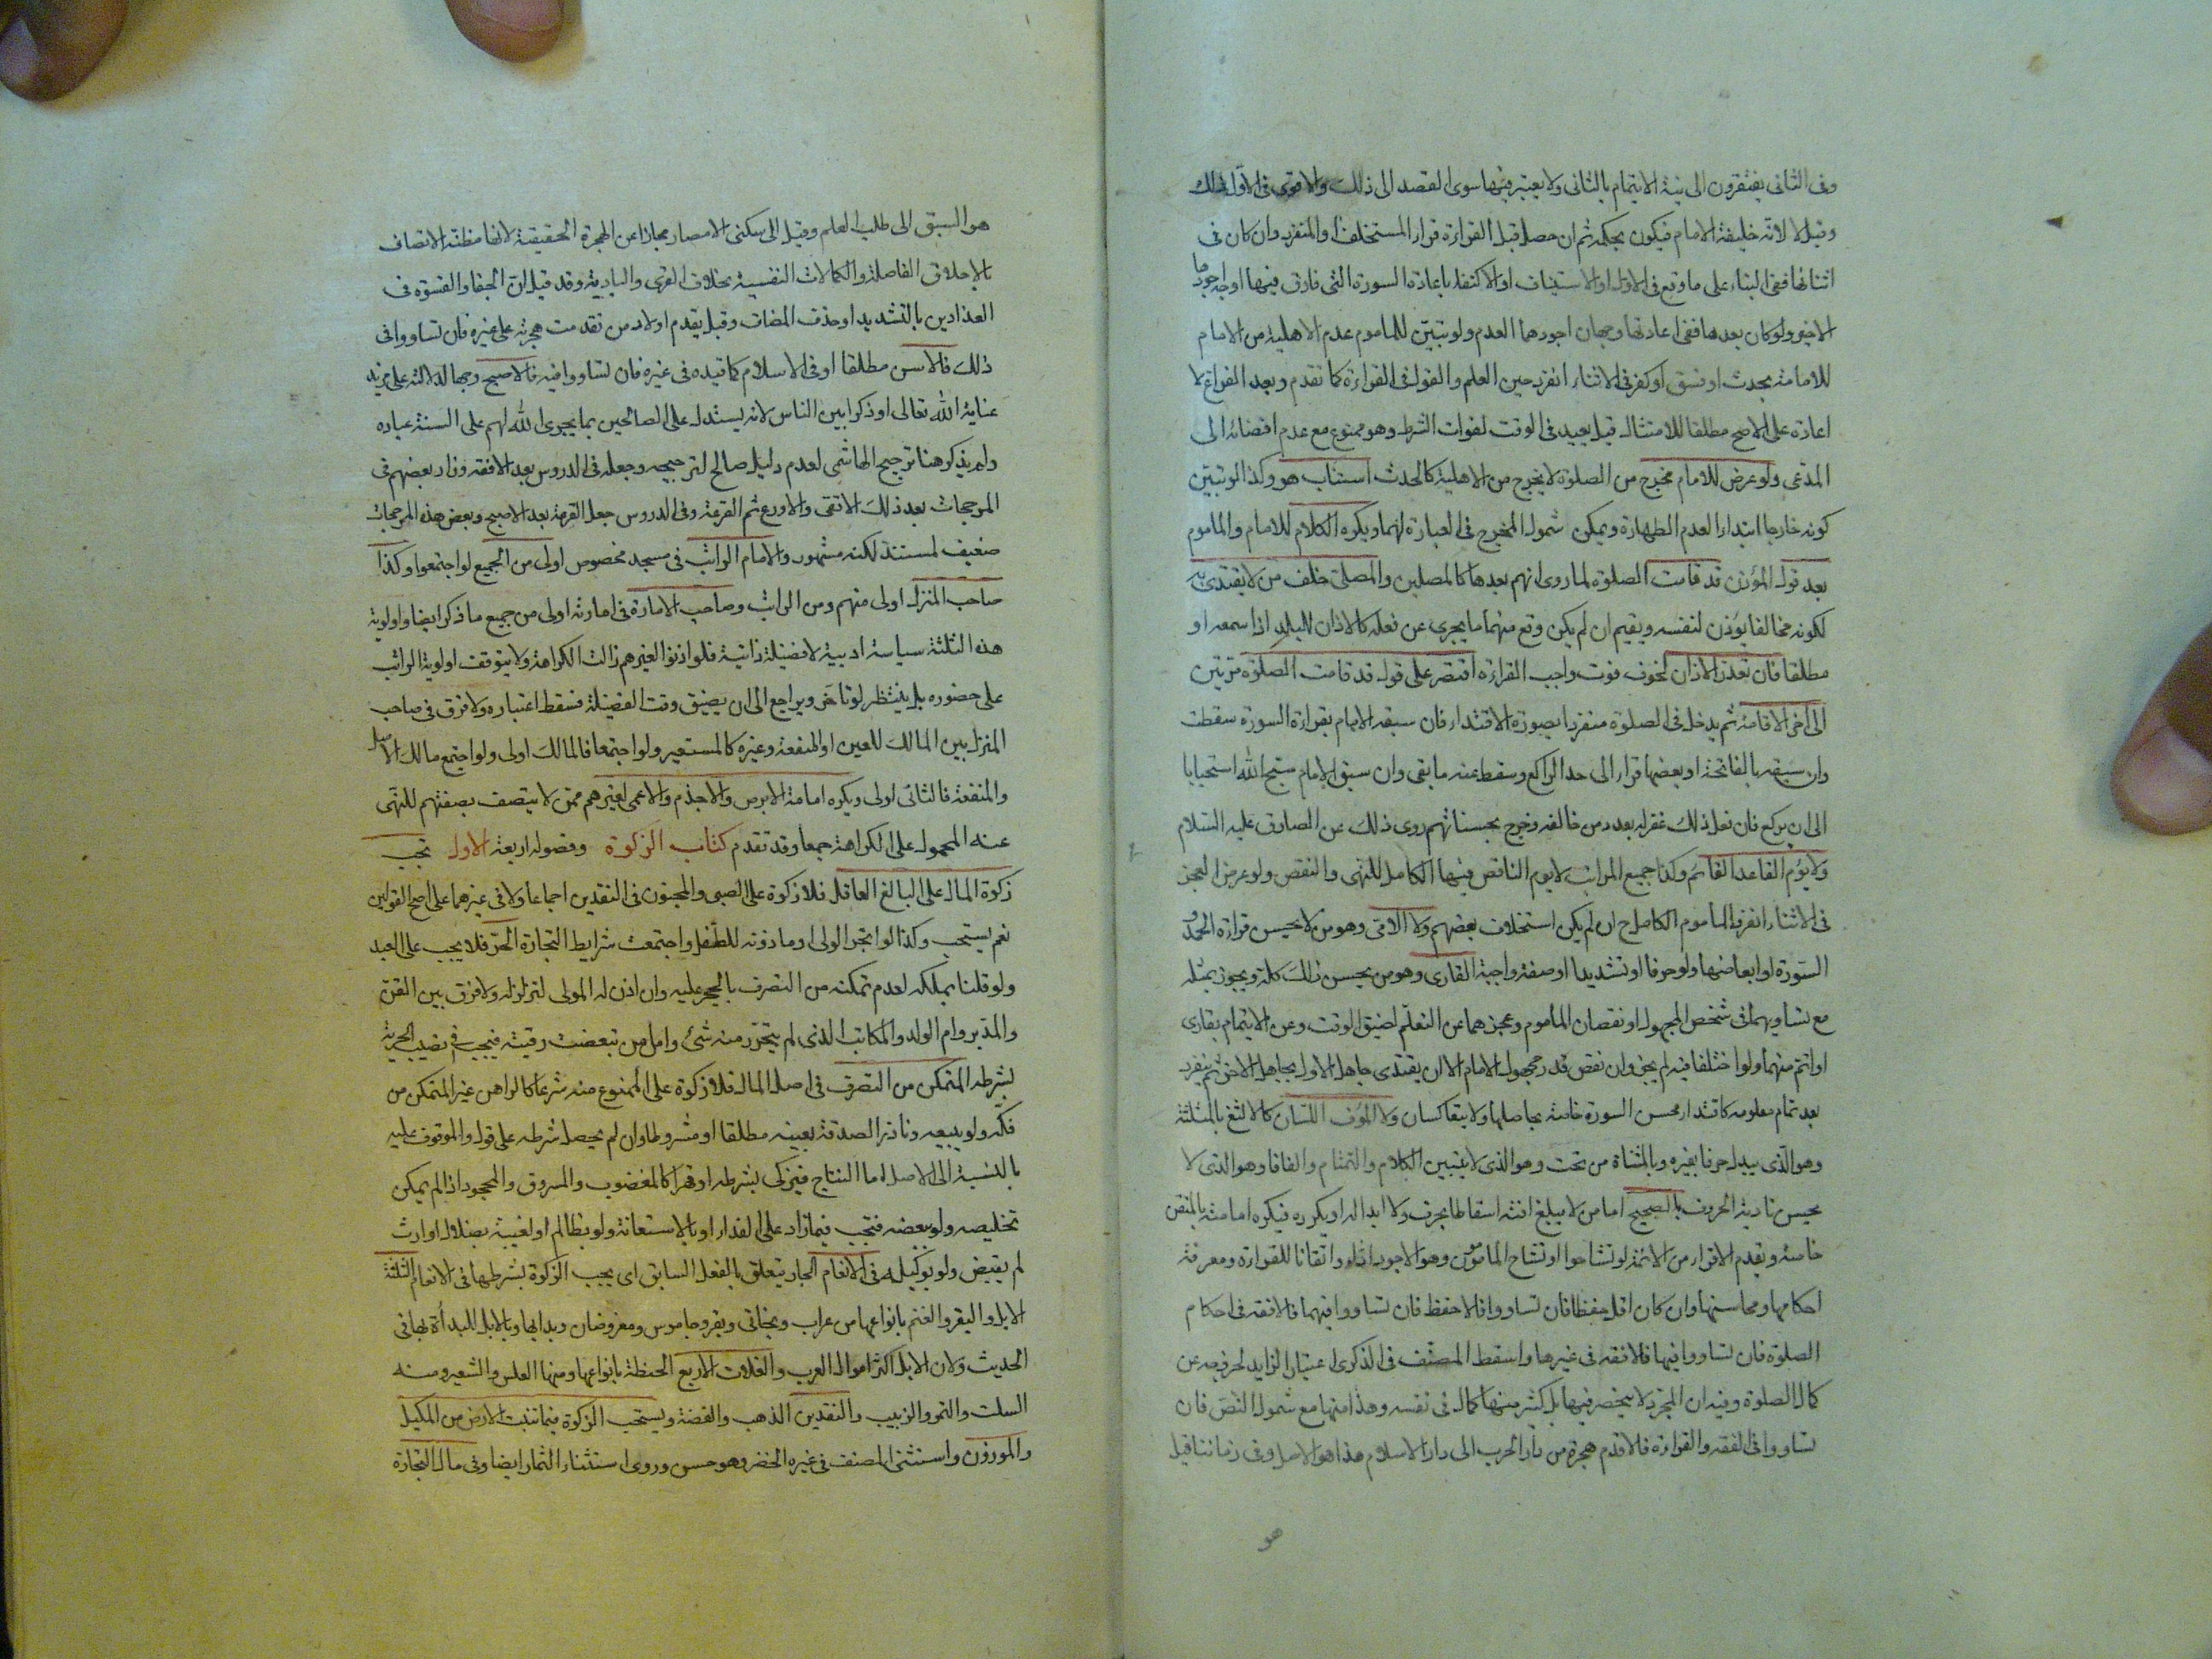 وفى الثانى يفتقرون الى نية الايتمام بالثانى ولا يعتبر فيها سوى القصد الى ذلك والاقوى فى الاول ذلك
وقيل لا لانه خليفة الامام فيكون بحكمه ثم ان حصل قبل القراءة قرا المستخلف او المنفرد وان كان فى
اثنائها ففى البناء على ما وقع فى الاول او الاستيناف او الاكتفاء باعادة السورة التى فارق فيها اوجه اجودها
الاخير ولو كان بعدها ففى اعادتها وجهان اجودهما العدم ولو تبين للماموم عدم الاهلية من الامام
للامامة بحدث او فسق او كفر فى الاثناء انفرد حين العلم والقول فى القراءة كما تقدم وبعد الفراغ لا
اعادة على الاصح مطلقا للامتثال قيل يعيد فى الوقت لفوات الشرط وهو ممنوع مع عدم افضائه الى
المدعى ولو عرض للامام مخرج من الصلوة لا يخرج من الاهلية كالحدث استناب هو وكذا لو تبين
كونه خارجا ابتداء لعدم الطهارة ويمكن شمول المخرج فى العبارة لهما ويكره الكلام للامام والماموم
بعد قول المؤذن قد قامت الصلوة لما روى انهم بعدها كالمصلين والمصلى خلف من لا يقتدى به
لكونه مخالفا يؤذن لنفسه ويقيم ان لم يكن وقع منهما ما يجزى عن فعله كالاذان للبلد اذا سمعه او
مطلقا فان تعذر الاذان لخوف فوت واجب القراءة اقتصر على قول قد قامت الصلوة مرتين
الى اخر الاقامة ثم يدخل فى الصلوة منفردا بصورة الاقتداء فان سبقه الامام بقراءة السورة سقطت
وان سبقه بالفاتحة او بعضها قرا الى حد الراكع وسقط عنه ما بقى وان سبق الامام سبح الله استحبابا
الى ان يركع فان فعل ذلك غفر له بعدد من خالفه وخرج بحسناتهم روى ذلك عن الصادق عليه السلام
ولا يؤم القاعد القائم وكذا جميع المراتب لا يوم الناقص فيها الكامل للنهى والنقص ولو عرض العجز
فى الاثناء انفرد المأموم الكامل ح ان لم يكن استخلاف بعضهم ولا الامى وهو من لا يحسن قراءة الحمد و
السورة او ابعاضهما ولو حرفا او تشديدا او صفة واجبة القارى وهو من يحسن ذلك كله ويجوز بمثله
مع تساويهما فى شخص المجهول او نقصان المأموم وعجزهما عن التعلم لضيق الوقت وعن الايتمام بقارى
او اتم منهما ولو اختلفا فيه لم يجز وان نقص قدر مجهول الامام الا ان يقتدى جاهل الاول بجاهل الاخر ثم ينفرد
بعد تمام معلومه كاقتداء محسن السورة خاصة بجاهلها ولا يتعاكسان ولا المؤف اللسان كالالثغ بالمثلثة
وهو الذى يبدل حرفا بغيره وبالمثناة من تحت وهو الذى لا يتبين الكلام والتمتام والفافا وهو الذى لا
يحسن تادية الحروف بالصحيح اما من لا يبلغ لثغه اسقاط الحرف ولا ابداله او يكرره فيكره امامته بالمتقن
خاصة ويقدم الاقرا من الائمة لو تشاحوا او تشاح المأمومون وهو الاجود اداء واتقانا للقراءة ومعرفة
احكامها ومحاسنها وان كان اقل حفظا فان تساووا فالاحفظ فان تساووا فيهما فالافقه فى احكام
الصلوة فان تساووا فيها فالافقه فى غيرها واسقط المصنف فى الذكرى اعتبار الزايد لخروجه عن
كمال الصلوة وفيه ان المرجح لا ينحصر فيها بل كثير منها كمال فى نفسه وهذا منها مع شمول النص فان
تساووا فى الفقه والقراءة فالاقدم هجرة من دار الحرب الى دار الاسلام هذا هو الاصل وفى زماننا قيل
هو
هو السبق الى طلب العلم وقيل الى سكنى الامصار مجازا عن الهجرة الحقيقية لانها مظنة الاتصاف
بالاخلاق الفاضلة والكمالات النفسية بخلاف القرى والبادية وقد قيل ان الجفا والقسوة فى
الفدادين بالتشديد او حذف المضاف وقيل يقدم اولاد من تقدمت هجرته على غيره فان تساووا فى
ذلك فالاسن مطلقا او فى الاسلام كما قيده فى غيره فان تساووا فيه فالاصبح وجها لدلالته على مزيد
عناية الله تعالى او ذكرا بين الناس لانه يستدل على الصالحين بما يجرى الله لهم على السنة عباده
ولم يذكر هنا ترجيح الهاشمى لعدم دليل صالح لترجيحه وجعله فى الدروس بعد الافقه وزاد بعضهم فى
المرجحات بعد ذلك الاتقى والاورع ثم القرعة وفى الدروس جعل القرعة بعد الاصبح وبعض هذه المرجحات
ضعيف المستند لكنه مشهور والامام الراتب فى مسجد مخصوص اولى من الجميع لو اجتمعوا وكذا
صاحب المنزل اولى منهم ومن الراتب وصاحب الامارة فى امارته اولى من جميع ما ذكر ايضا واولوية
هذه الثلثة سياسة ادبية لا فضيلة ذاتية فلو اذنوا لغيرهم زالت الكراهة ولا يتوقف اولوية الراتب
على حضوره بل ينتظر لو تاخر ويراجع الى ان يضيق وقت الفضيلة فسقط اعتباره ولا فرق فى صاحب
المنزل بين المالك للعين او المنفعة وغيره كالمستعير ولو اجتمعا فالمالك اولى ولو اجتمع مالك الاصل
والمنفعة فالثانى اولى ويكره امامة الابرص والاجذم والاعمى لغيرهم ممن لا يتصف بصفتهم للنهى
عنه المحمول على الكراهة جمعا وقد تقدم كتاب الزكوة وفصوله اربعة الاول تجب
زكوة المال على البالغ العاقل فلا زكوة على الصبى والمجنون فى النقدين اجماعا ولا فى غيرهما على اصح القولين
نعم يستحب وكذا لو اتجر الولى او مأذونه للطفل واجتمعت شرايط التجارة الحر فلا يجب على العبد
ولو قلنا بملكه لعدم تمكنه من التصرف بالحجر عليه وان اذن له المولى لتزلزله ولا فرق بين القن
والمدبر وام الولد والمكاتب الذى لم يتحرر منه شئ واما من تبعضت رقيته فيجب فى نصيب الحرية
بشرطه المتمكن من التصرف فى اصل المال فلا زكوة على الممنوع منه شرعا كالراهن غير المتمكن من
فكه ولو ببيعه وناذر الصدقة بعينه مطلقا او مشروطا وان لم يحصل شرطه على قول والموقوف عليه
بالنسبة الى الاصل اما النتاج فيزكى بشرطه او قهرا كالمغصوب والمسروق والمجحود اذا لم يمكن
تخليصه ولو ببعضه فتجب فيما زاد على الفداء او بالاستعانة ولو بظالم او لغيبة بضلال او ارث
لم يقبض ولو بوكيله فى الانعام الجار يتعلق بالفعل السابق اى يجب الزكوة بشرطها فى الانعام الثلثة
الابل والبقر والغنم بانواعها من عراب وبخاتى وبقر وجاموس ومعز وضان وبدا بها وبالابل للبدأة بها فى
الحديث ولان الابل اكثر اموال العرب والغلات الاربع الحنطة بانواعها ومنها العلس والشعير ومنه
السلت والتمر والزبيب والنقدين الذهب والفضة ويستحب الزكوة فيما تنبت الارض من المكيل
والموزون واستثنى المصنف فى غيره الخضر وهو حسن وروى استثناء الثمار ايضا وفى مال التجارة